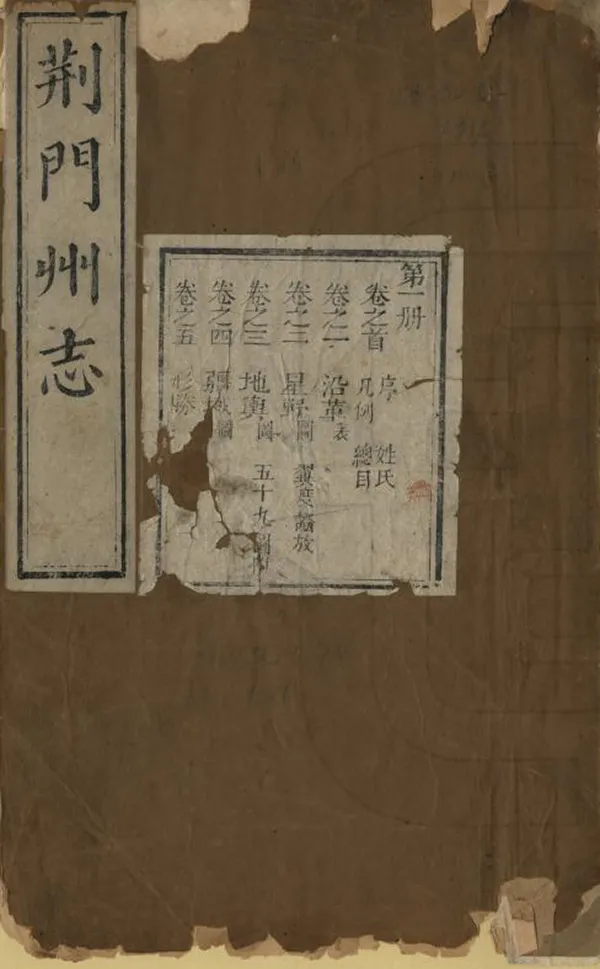 荆門州志
第一册
卷之首 序 姓氏
凡例 總目
卷之一 沿革表
卷之二 星野圖
卷之三 地輿圖 五十九
卷之四 疆域圖
卷之五 形勝